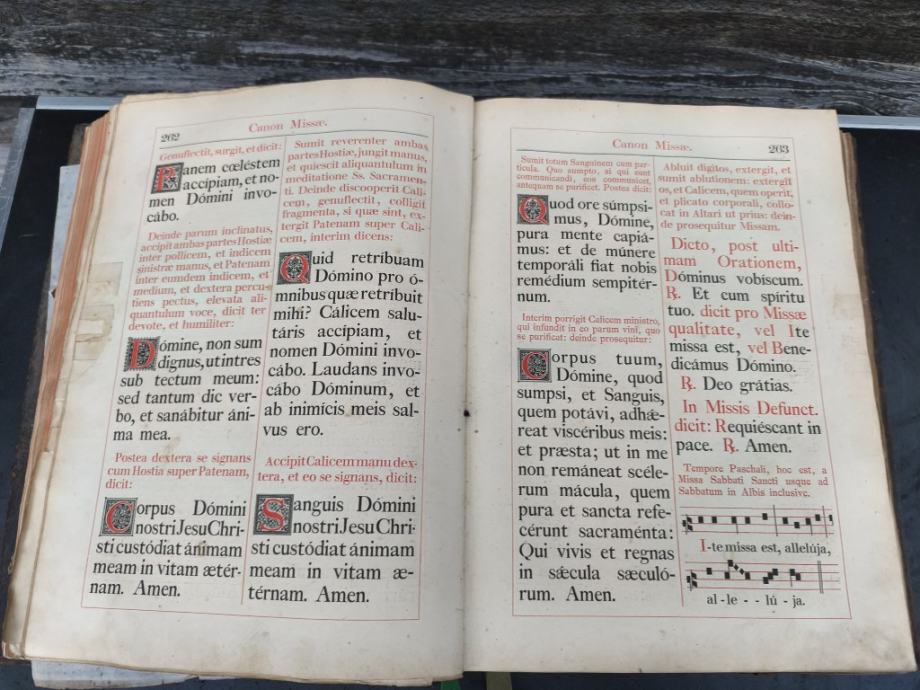 262
Canon Missæ.
Genuflectit, surgit, et dicit:
Panem cœléstem
accípiam, et no-
men Dómini invo-
cábo.
Deinde parum inclinatus,
accipit ambas partes Hostiæ
inter pollicem, et indicem
sinistræ manus, et Patenam
inter eumdem indicem, et
medium, et dextera percu-
tiens pectus, elevata ali-
quantulum voce, dicit ter
devote, et humiliter:
Dómine, non sum
dignus, ut intres
sub tectum meum:
sed tantum dic ver-
bo, et sanábitur áni-
ma mea.
Postea dextera se signans
cum Hostia super Patenam,
dicit:
Corpus Dómini
nostri Jesu Chri-
sti custódiat ánimam
meam in vitam ætér-
nam. Amen.
Sumit reverenter ambas
partes Hostiæ, jungit manus,
et quiescit aliquantulum in
meditatione Ss. Sacramen-
ti. Deinde discooperit Cali-
cem, genuflectit, colligit
fragmenta, si quæ sint, ex-
tergit Patenam super Cali-
cem, interim dicens:
Quid retríbuam
Dómino pro ó-
mnibus quæ retríbuit
mihi? Cálicem salu-
táris accípiam, et
nomen Dómini invo-
cábo. Laudans invo-
cábo Dóminum, et
ab inimícis meis sal-
vus ero.
Accipit Calicem manu dex-
tera, et eo se signans, dicit:
Sanguis Dómini
nostri Jesu Chri-
sti custódiat ánimam
meam in vitam æ-
térnam. Amen.
Canon Missæ.
263
Sumit totum Sanguinem cum par-
ticula. Quo sumpto, si qui sunt
communicandi, eos communicet,
antequam se purificet. Postea dicit:
Quod ore súmpsi-
mus, Dómine,
pura mente capiá-
mus: et de múnere
temporáli fiat nobis
remédium sempitér-
num.
Interim porrigit Calicem ministro,
qui infundit in eo parum vini, quo
se purificat: deinde prosequitur:
Corpus tuum,
Dómine, quod
sumpsi, et Sanguis,
quem potávi, adhæ-
reat viscéribus meis:
et præsta; ut in me
non remáneat scéle-
rum mácula, quem
pura et sancta refe-
cérunt sacraménta:
Qui vivis et regnas
in sǽcula sæculó-
rum. Amen.
Abluit digitos, extergit, et
sumit ablutionem: extergit
os, et Calicem, quem operit,
et plicato corporali, collo-
cat in Altari ut prius: dein-
de prosequitur Missam.
Dicto, post ulti-
mam Orationem,
Dóminus vobíscum.
℟. Et cum spíritu
tuo. dicit pro Missæ
qualitate, vel Ite
missa est, vel Bene-
dicámus Dómino.
℟. Deo grátias.
In Missis Defunct.
dicit: Requiéscant in
pace. ℟. Amen.
Tempore Paschali, hoc est, a
Missa Sabbati Sancti usque ad
Sabbatum in Albis inclusive.
I-te missa est, allelúja,
al - le - - lú - ja.